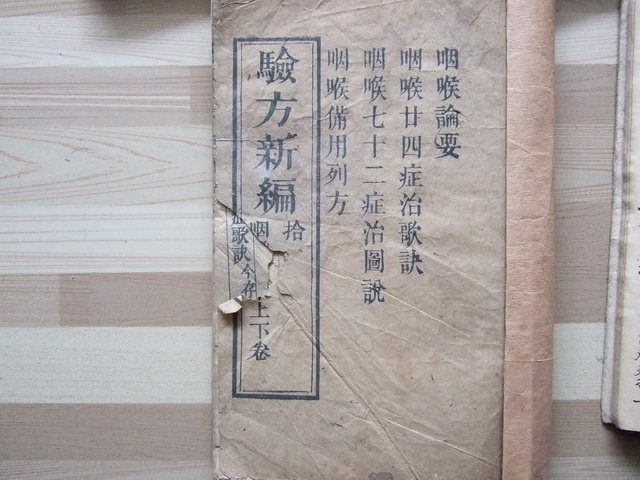 咽喉論要
咽喉廿四症治歌訣
咽喉七十二症治圖說
咽喉備用列方
驗方新編
拾
咽 上下卷
症歌訣今存